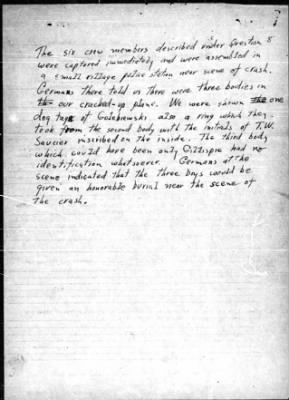 The six crew members described under Question 8
were captured immediately and were assembled in
a small village police station near scene of crash.
Germans there told us there were three bodies in
our cracked-up plane. We were shown one
dog tag of Golebiewski also a ring which they
took from the second body with the initials of T.W.
Saucier inscribed on the inside. The third body
which could have been only Gillispie had no
identification whatsoever. Germans at the
scene indicated that the three boys would be
given an honorable burial near the scene of
the crash.